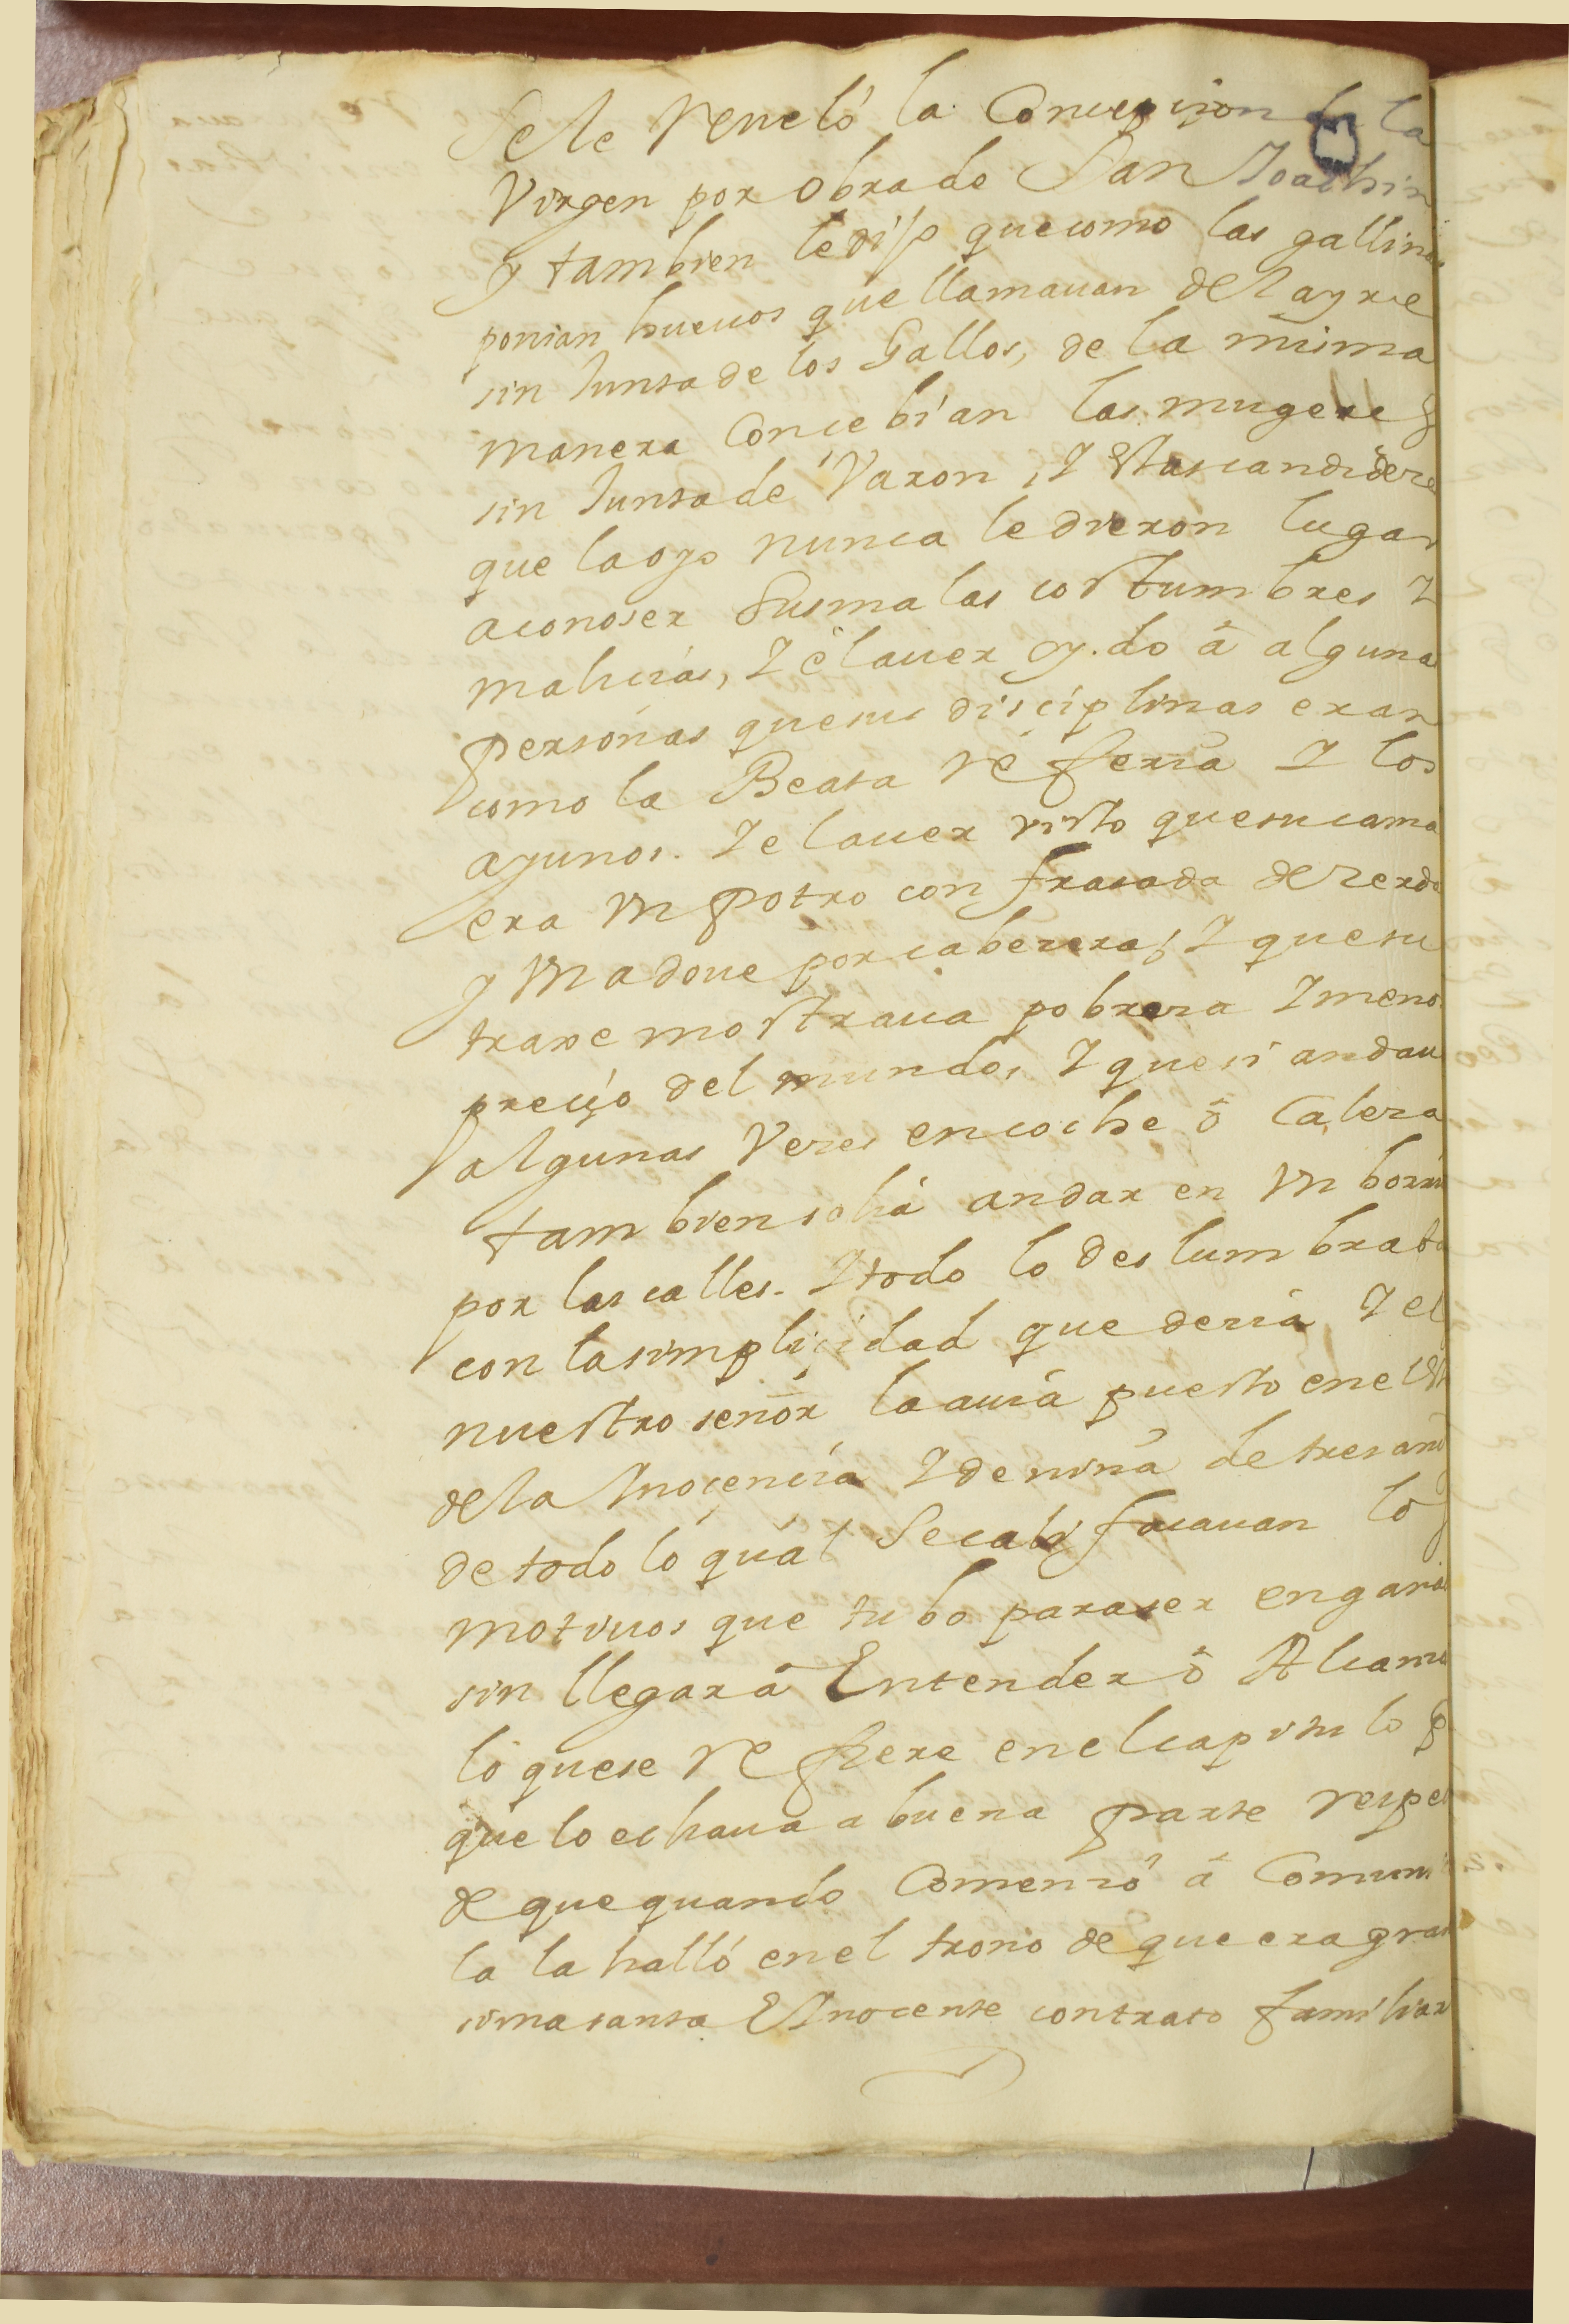 Se le reueló la Concepcion de la
Virgen por obra de San Joachin
y tambien le dijo que como las gallinas
ponian hueuos que llamauan del ayre
sin Junta de los Gallos, de la misma
manera Concebian las mugeres
sin Junta de Varon, I estas candideces
que la oyo nunca le dieron lugar
a conoser sus malas costumbres I
malicias, I el auer oydo á alguna
personas que sus disciplinas eran
como la Beata referia I los
ayunos. I el auer visto que su cama
era Un potro con frasada de cerda
y Un adoue por cabecera, I que su
traxe mostraua pobreza I meno
precio del mundo, I que si andau
algunas Veces en coche ó Calesa
tambien solia andar en Un borri
por las calles. I todo lo deslumbrat
con la simplicidad que decia I el
nuestro señor la auia puesto en el est
de la Inocencia I de niña de tres año
de todo lo qual Se calificauan los
motiuos que tubo para ser engaña
sin llegar á Entender ó Alcansa
lo que se refiere en el capitulo p
que lo echaua a buena parte respec
de que quando Comenzó á Comuni
la la halló en el trono de que era gran
sima santa E Inocente con trato familiar